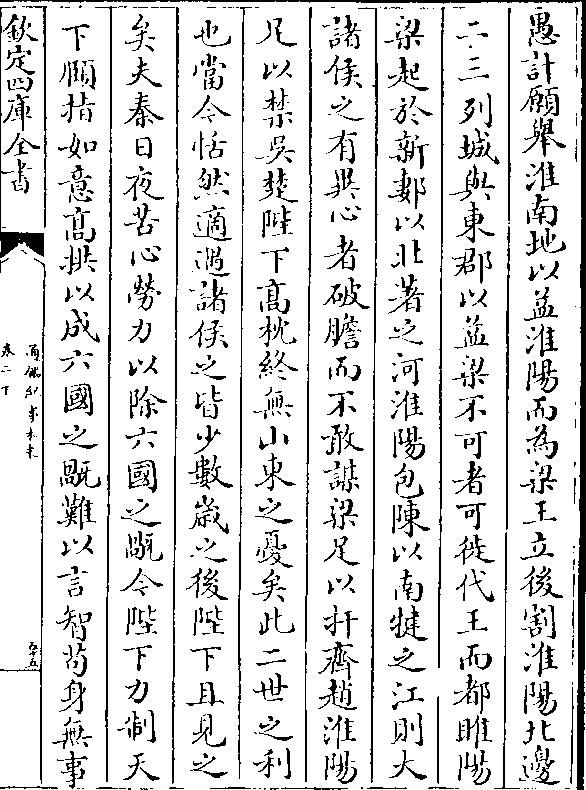 愚計願舉淮南地以益淮陽而為梁王立後割淮陽北邊
二三列城與東郡以益梁不可者可徙代王而都睢陽
梁起於新郪以北著之河淮陽包陳以南揵之江則大
諸侯之有異心者破膽而不敢謀梁足以扞齊趙淮陽
足以禁吳楚陛下高枕終無山東之憂矣此二世之利
也當今恬然適遇諸侯之皆少數歲之後陛下且見之
矣夫秦日夜苦心勞力以除六國之旤今陛下力制天
下頥指如意髙拱以成六國之旤難以言智茍身無事
欽定四庫全書
通鑑紀事本末
卷二下